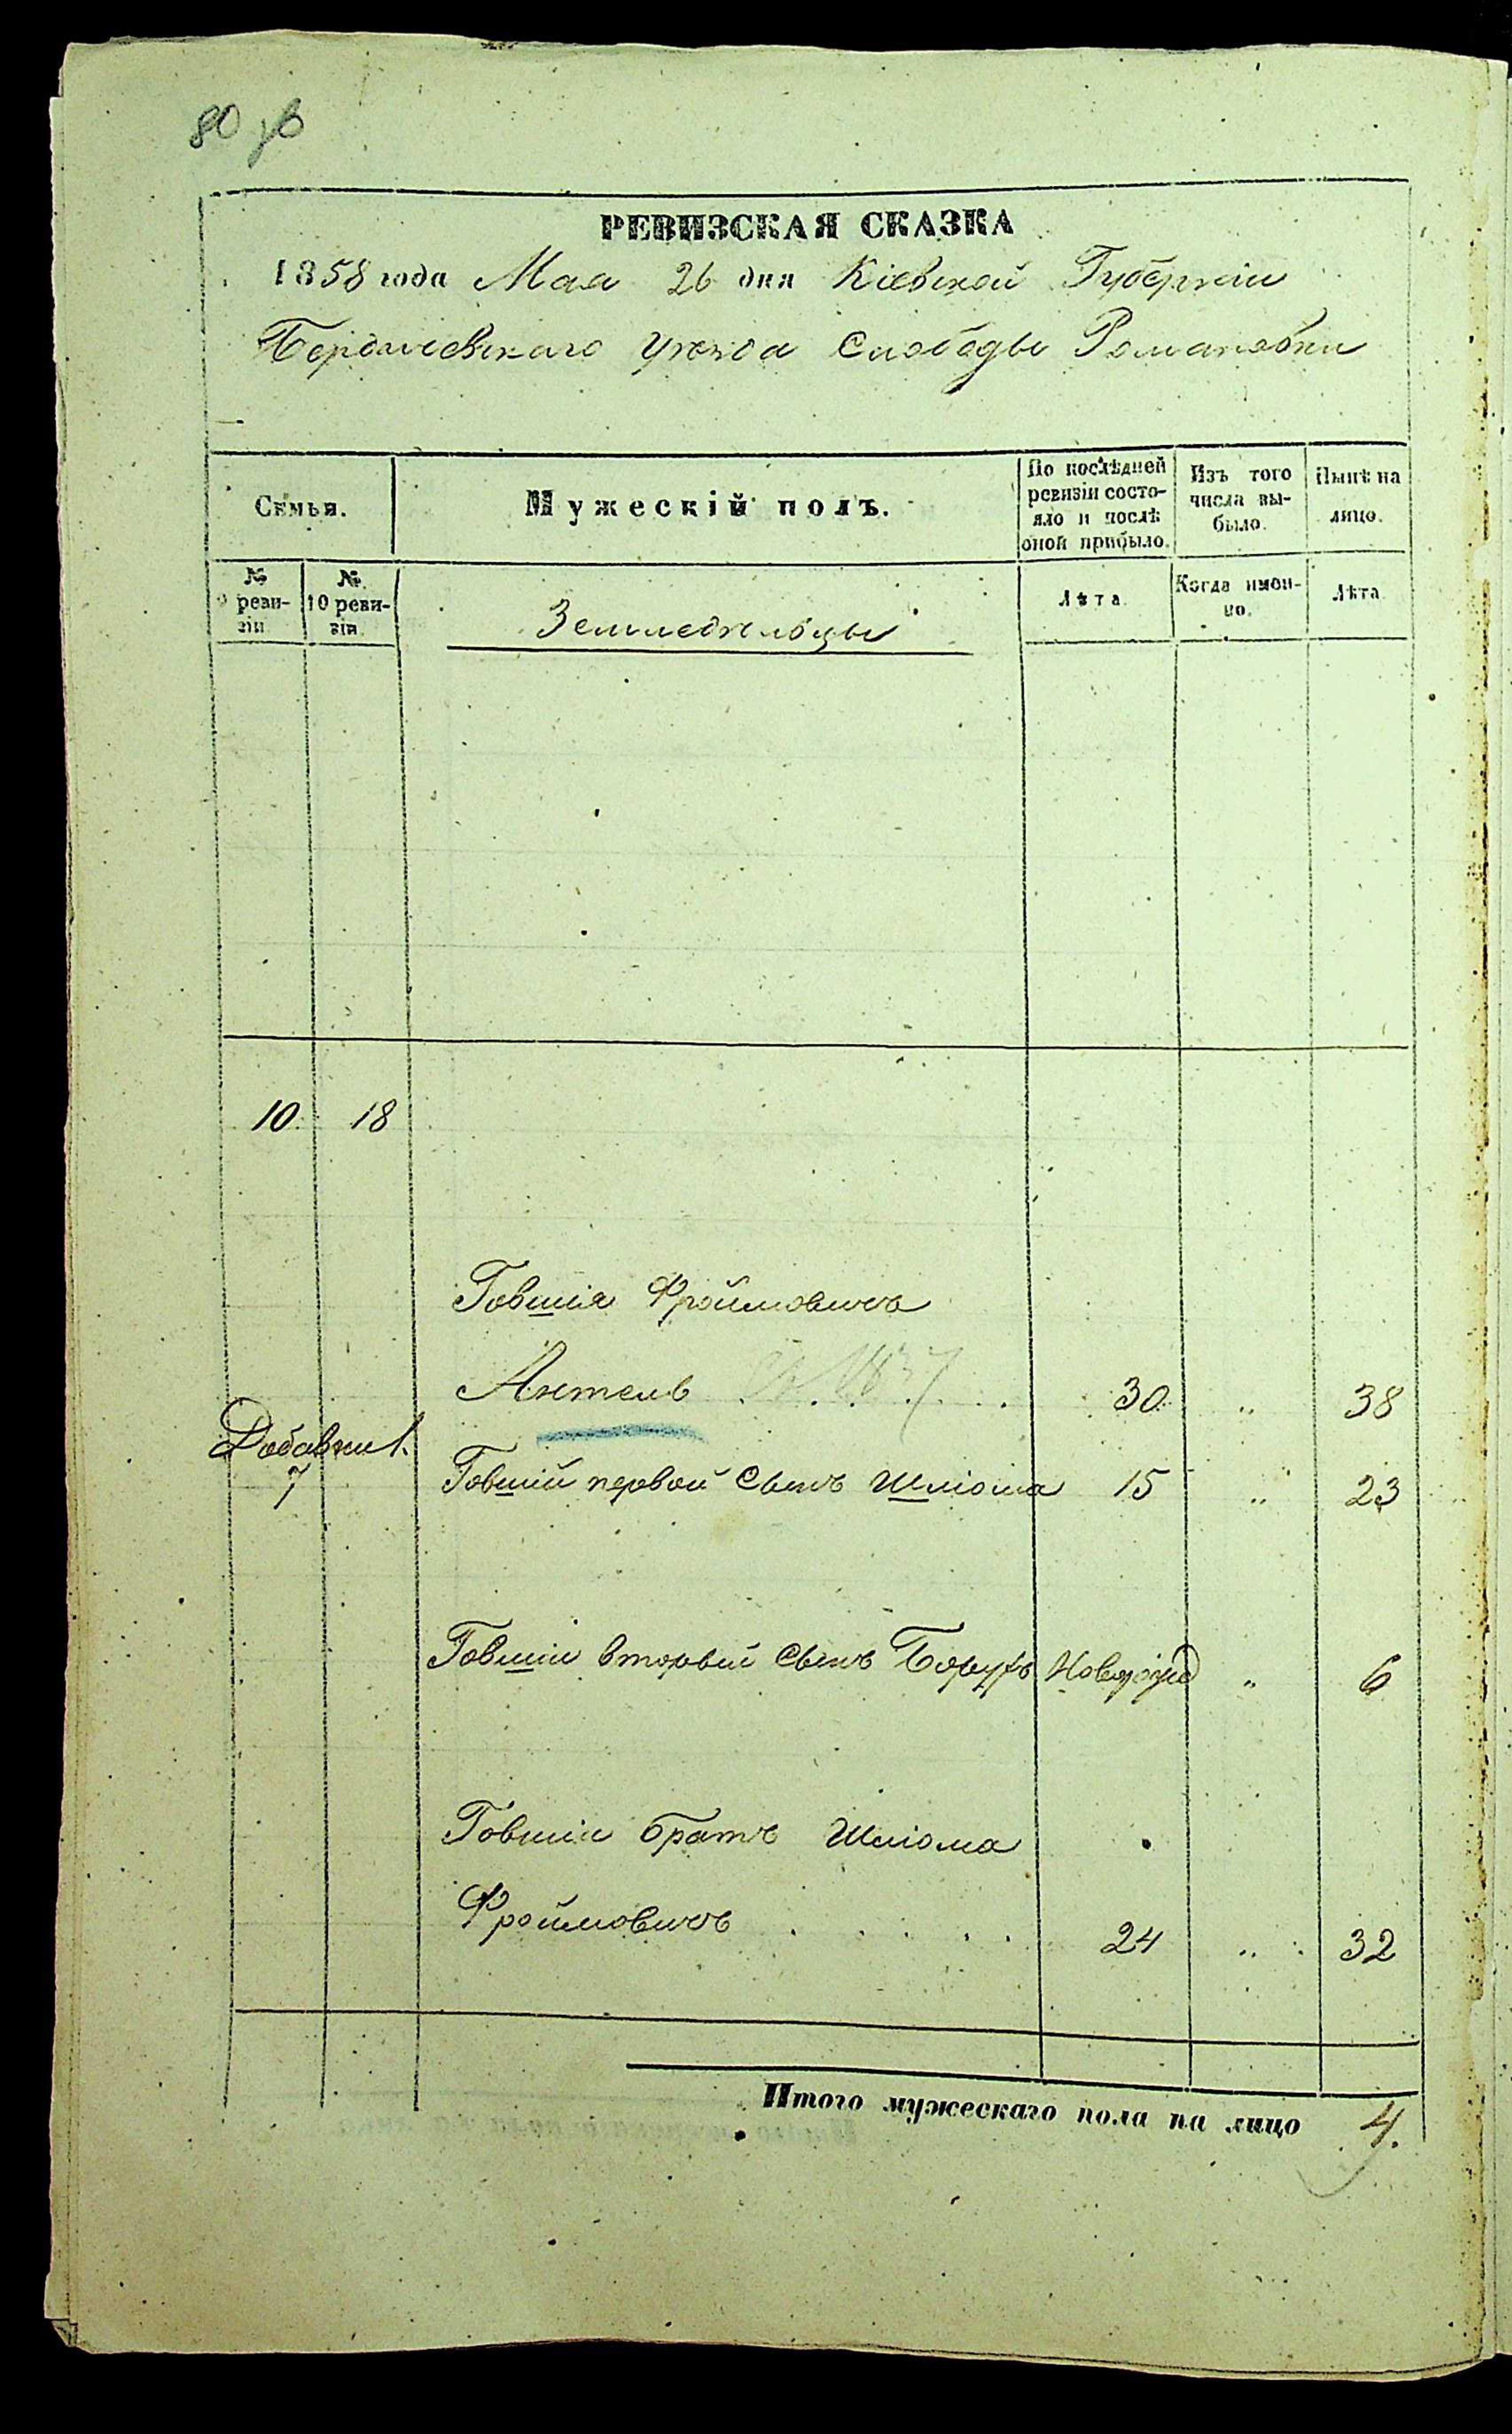 80 зв
РЕВИЗСКАЯ СКАЗКА
1858 года Мая 26 дня Кіевской Губерніи
Бердичевскаго Уѣзда Слободы Романовки
Семьи.
Мужескій полъ.
По послѣдней ревизіи состояло и послѣ оной прибыло.
Изъ того числа выбыло.
Нынѣ на лицо.
№ 9 ревизіи
№ 10 ревизіи
Земледѣльцы
Лѣта.
Когда именно.
Лѣта.
10. 18
Говшія Фроймовичъ
Антель 30. „ 38
Добавки 1.
7 Говшій первой Сынъ Шліома 15 „ 23
Говшіи вторый Сынъ Борухъ Новорожд „ 6
Говшіи братъ Шліома
Фроймовичъ 24 „ 32
Итого мужескаго пола на лицо 4.